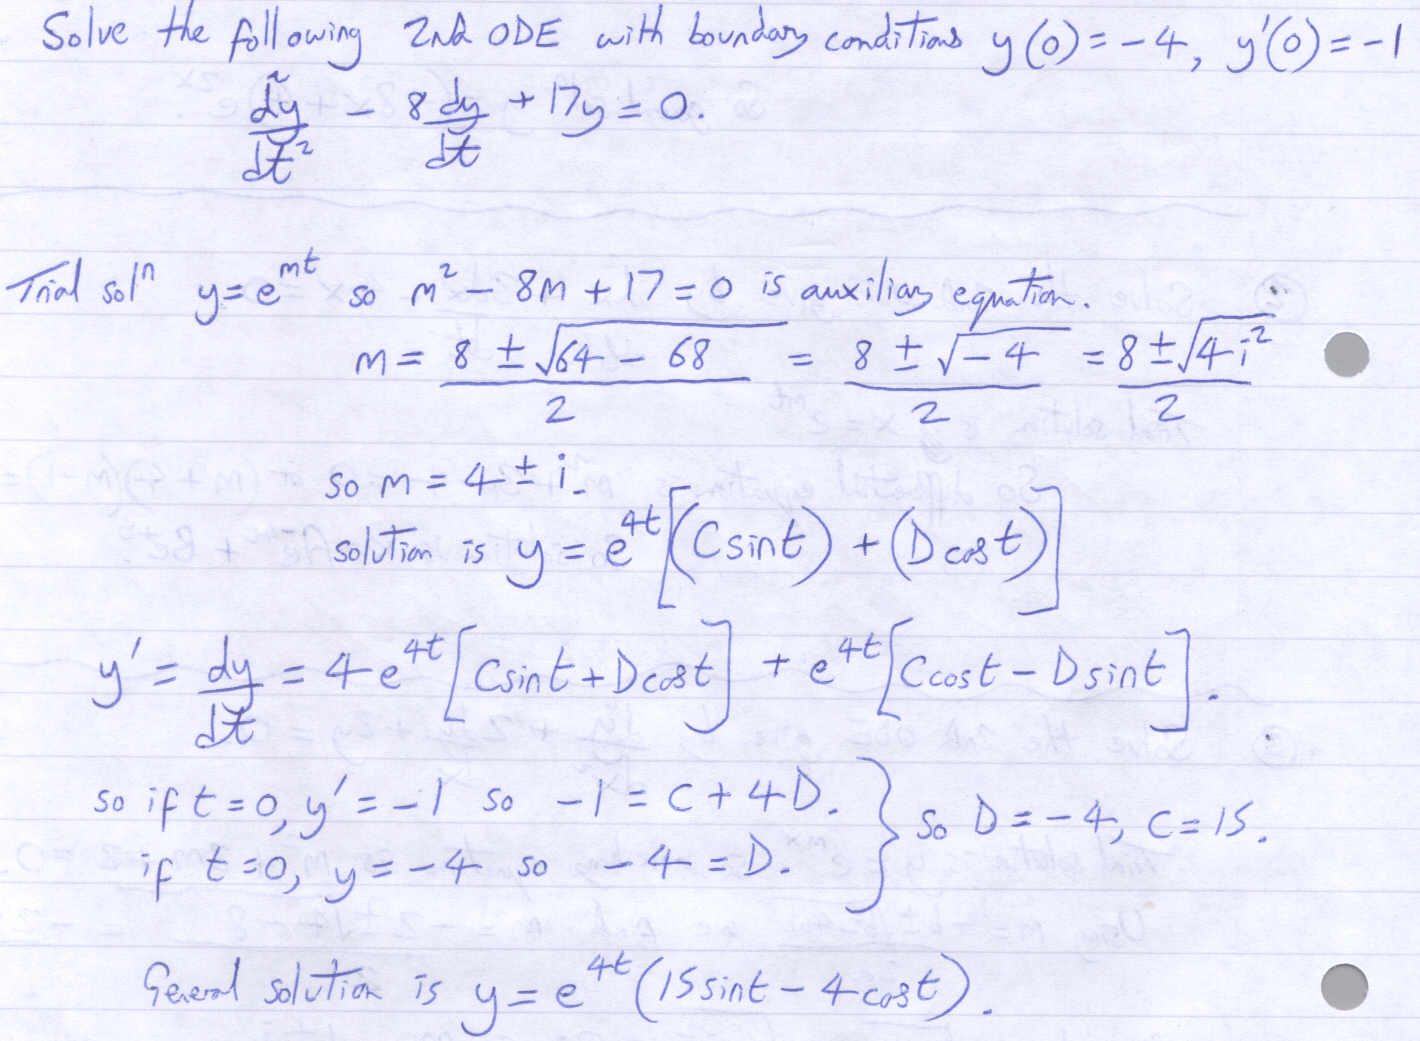 Solve the following 2nd ODE with boundary conditions y(0) = -4, y'(0) = -1
d²y/dt² - 8 dy/dt + 17y = 0.
Trial solⁿ y = e^mt so m² - 8m + 17 = 0 is auxiliary equation.
m = (8 ± √(64 - 68))/2 = (8 ± √(-4))/2 = (8 ± √(4i²))/2
so m = 4 ± i.
solution is y = e^4t [(C sin t) + (D cos t)]
y' = dy/dt = 4e^4t [C sin t + D cos t] + e^4t [C cos t - D sin t].
so if t = 0, y' = -1 so -1 = C + 4D. } so D = -4, C = 15.
if t = 0, y = -4 so -4 = D.
General solution is y = e^4t (15 sin t - 4 cos t).